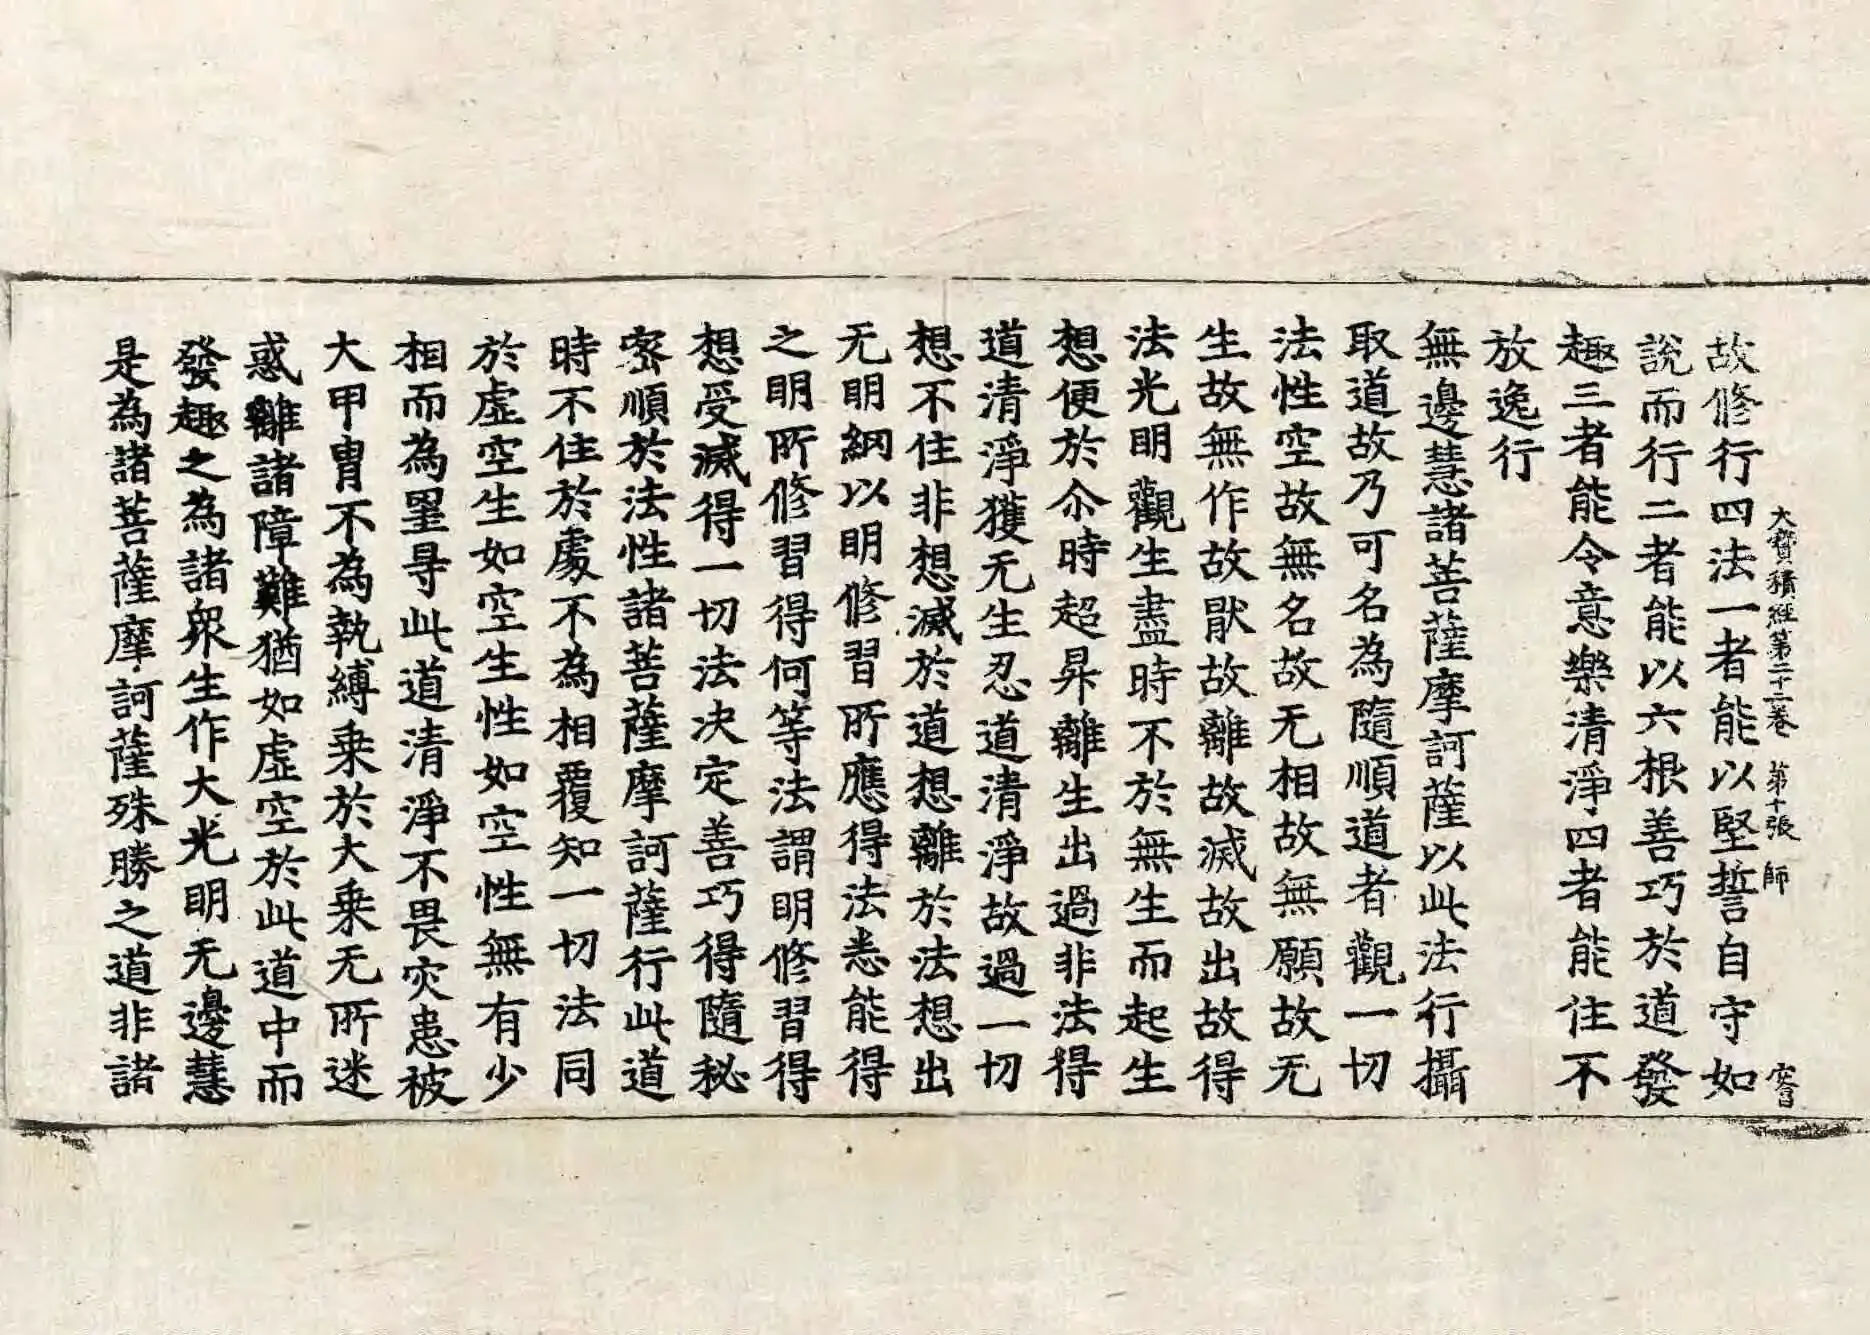 大寶積經第二十三卷 第十張 師
故修行四法一者能以堅誓自守如
說而行二者能以六根善巧於道發
趣三者能令意樂清淨四者能住不
放逸行
無邊慧諸菩薩摩訶薩以此法行攝
取道故乃可名為隨順道者觀一切
法性空故無名故无相故無願故无
生故無作故猒故離故滅故出故得
法光明觀生盡時不於無生而起生
想便於尒時超昇離生出過非法得
道清淨獲无生忍道清淨故過一切
想不住非想想滅於道想離於法想出
无明網以明修習所應得法悉能得
之明所修習得何等法謂明修習得
想受滅得一切法决定善巧得隨秘
密順於法性諸菩薩摩訶薩行此道
時不住於處不為相覆知一切法同
於虛空生如空生性如空性無有少
相而為罣㝵此道清淨不畏灾患被
大甲冑不為執縛乗於大乗无所迷
惑離諸障難猶如虛空於此道中而
發趣之為諸衆生作大光明无邊慧
是為諸菩薩摩訶薩殊勝之道非諸